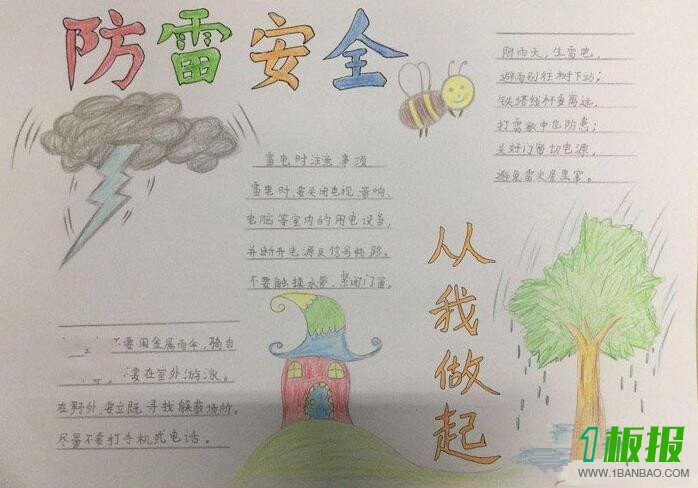 防雷安全
阴雨天，生雷电，
避雨别往树下站；
铁塔线杆要离远，
打雷家中也防患；
关好门窗切电源，
避免雷火屋里窜。
雷电时注意事项
雷电时，要关闭电视、音响、
电脑等室内的用电设备，
并断开电源及信号线路。
不要触摸水管，紧闭门窗。
从我做起
不要用金属雨伞，骑自
要在室外游泳。
在野外，要立既寻找躲蔽场所。
尽量不要打手机或电话。
1板报
WWW.1BANBAO.COM